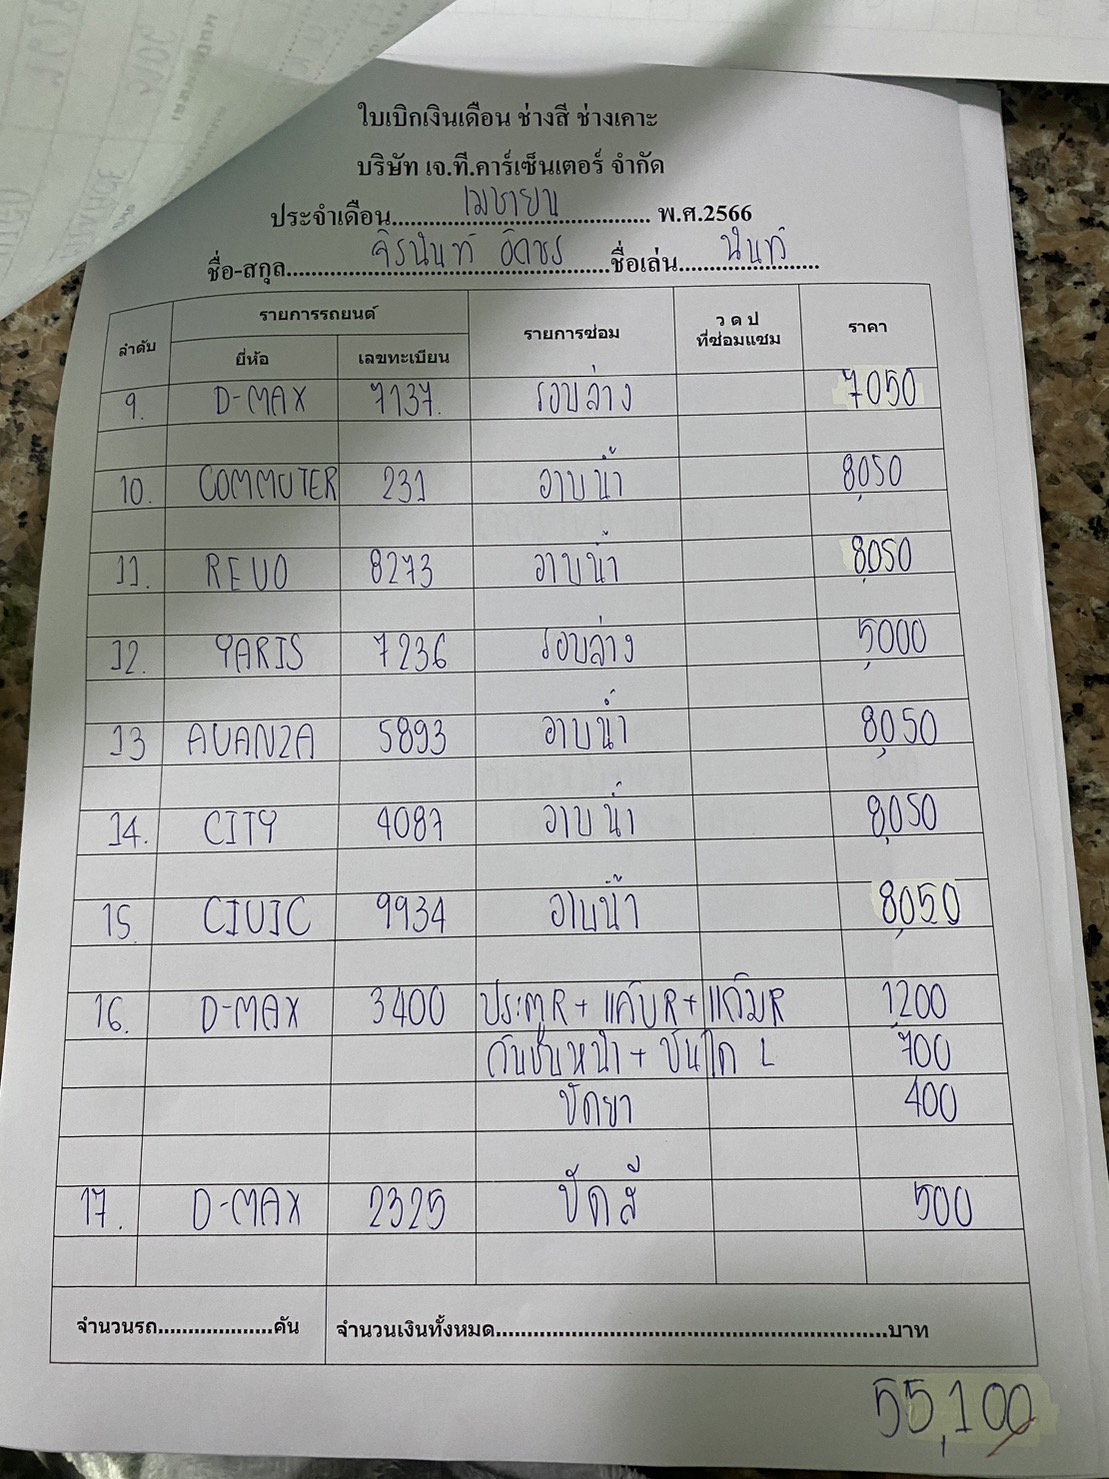 ใบเบิกเงินเดือน ช่างสี ช่างเคาะ
บริษัท เจ.ที.คาร์เซ็นเตอร์ จำกัด
ประจำเดือน เมษายน พ.ศ.2566
ชื่อ-สกุล จิรนันท์ ชื่อเล่น นันท์
ลำดับ รายการรถยนต์ รายการซ่อม ว ด ป ที่ซ่อมแซม ราคา
ยี่ห้อ เลขทะเบียน
9. D-MAX 7137. รอบล่าง 7,050
10. COMMUTER 231 อาบน้ำ 8,050
11. REVO 8273 อาบน้ำ 8,050
12. YARIS 7236 รอบล่าง 5,000
13 AVANZA 5893 อาบน้ำ 8,050
14. CITY 4087 อาบน้ำ 8,050
15. CIVIC 9934 อาบน้ำ 8,050
16. D-MAX 3400 ประตูR + แค๊บR + แก้มR 1,200
กันชนหน้า + บันได L 700
ขัดยา 400
17. D-MAX 2325 ขัดสี 500
จำนวนรถ....................คัน จำนวนเงินทั้งหมด....................บาท
55,100